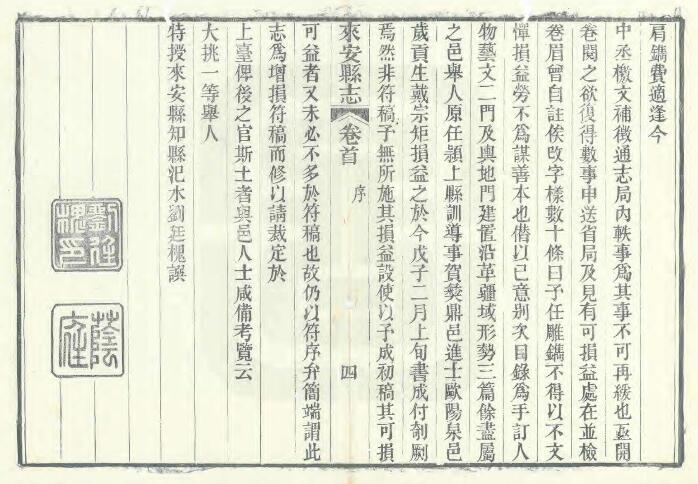 肩鐫費適逢今
中丞檄文補徵通志局內軼事爲其事不可再緩也亟開
卷閱之欲復得數事申送省局及見有可損益處在並檢
卷眉曾自註俟改字樣數十條曰予任雕鐫不得以不文
憚損益勞不爲謀善本也借以己意別次目錄爲手訂人
物藝文二門及輿地門建置沿革疆域形勢三篇餘盡屬
之邑舉人原任潁上縣訓導事賀爕鼎邑進士歐陽泉邑
歲貢生戴宗炬損益之於今戊子二月上旬書成付剞劂
焉然非符稿予無所施其損益設使以予成初稿其可損
來安縣志 卷首 序 四
可益者又未必不多於符稿也故仍以符序弁簡端謂此
志爲增損符稿而修以請裁定於
上臺俾後之官斯土者與邑人士咸備考覽云
大挑一等舉人
特授來安縣知縣汜水劉廷槐譔
劉廷槐印
蔭庭